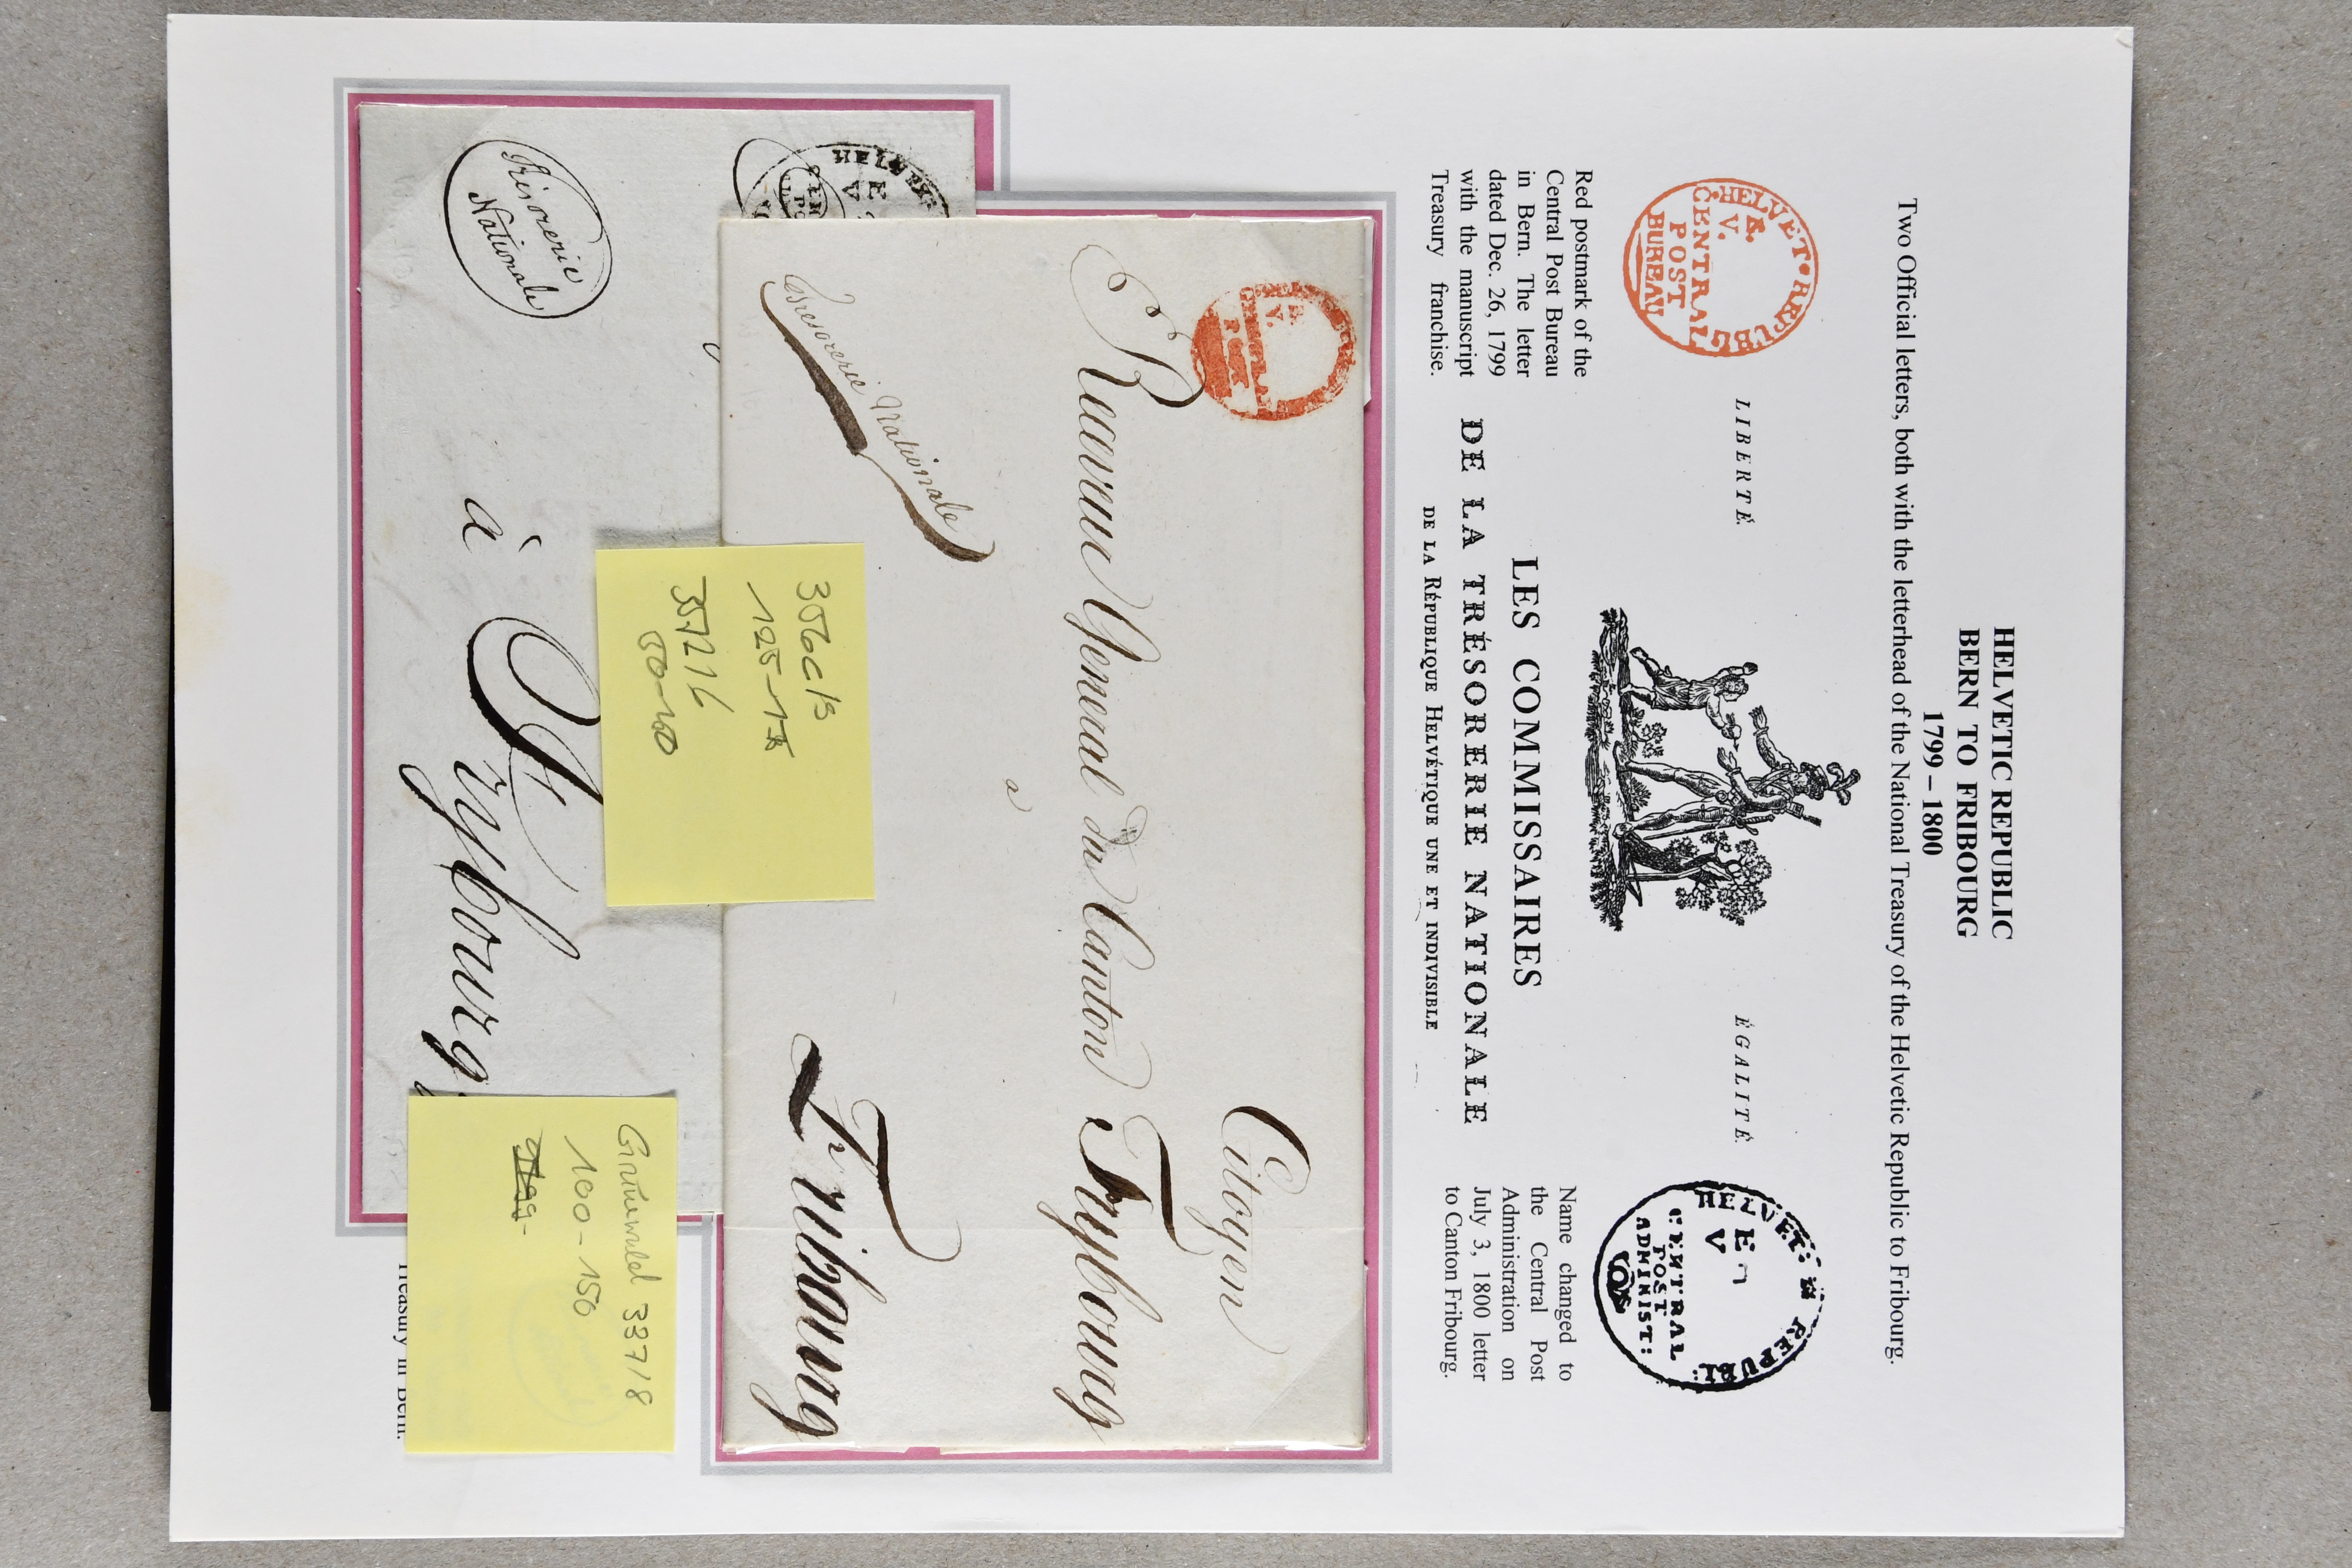 HELVETIC REPUBLIC
BERN TO FRIBOURG
1799 – 1800
Two Official letters, both with the letterhead of the National Treasury of the Helvetic Republic to Fribourg.
HELVET. REPUBL
V.
CENTRAL
POST
BUREAU
LIBERTÉ.
ÉGALITÉ.
HELVET: REPUBL:
E
V
CENTRAL
POST
ADMINIST:
Red postmark of the
Central Post Bureau
in Bern. The letter
dated Dec. 26, 1799
with the manuscript
Treasury franchise.
LES COMMISSAIRES
DE LA TRÉSORERIE NATIONALE
DE LA RÉPUBLIQUE HELVÉTIQUE UNE ET INDIVISIBLE
Name changed to
the Central Post
Administration on
July 3, 1800 letter
to Canton Fribourg.
V.
POST
Citoyen
Receveur General du Canton Frybourg
a
Tresorerie Nationale
Fribourg
HELVET
E
V
Trésorerie
Nationale
à Frybourg
356c/s
125-
357216
50-100
Grünewald 337/8
100-150
Treasury in Bern.